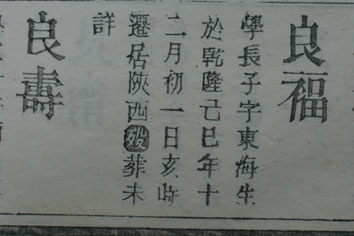 良福
學長子字東海生
於乾隆己巳年十
二月初一日亥時
遷居陝西歿葬未
詳
良壽